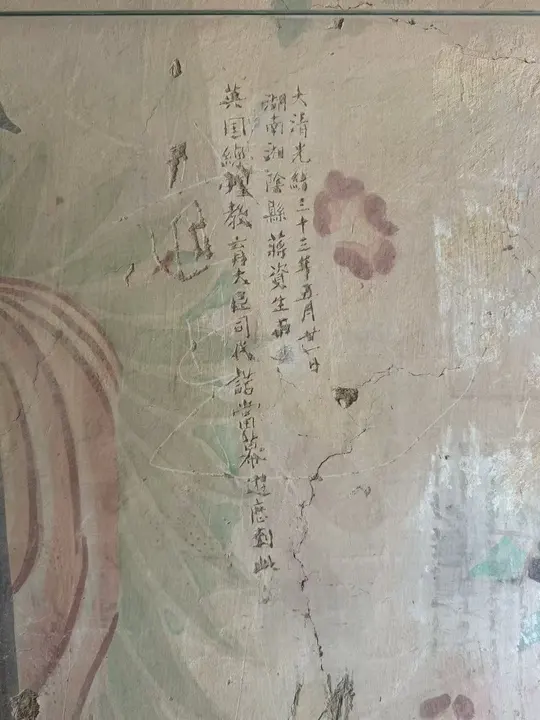 大清光緒三十三年五月廿一日
湖南湘陰縣蔣資生
英国總理教育大臣司代諾當幕遊歷到此